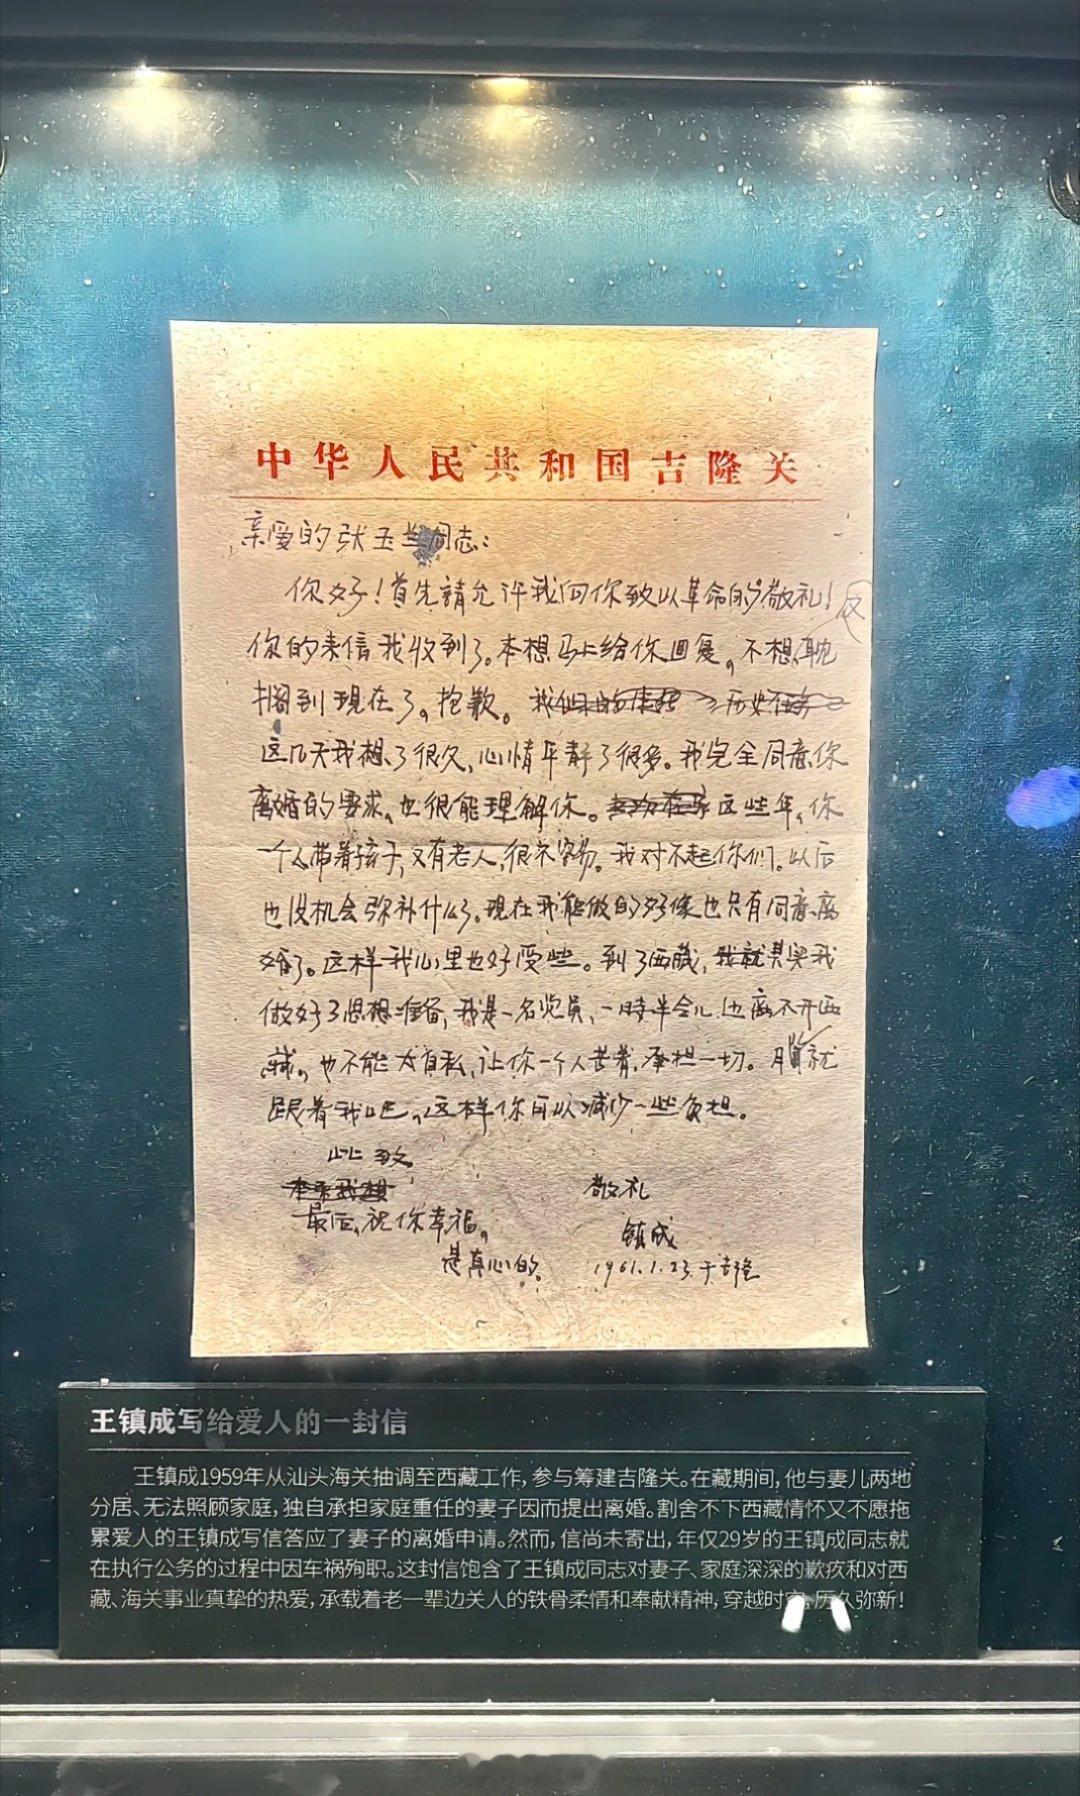 中华人民共和国吉隆关
亲爱的张玉兰同志：
你好！首先請允许我向你致以革命的敬礼！
你的来信我收到了。本想马上给你回复，不想耽
搁到现在了，抱歉。
这几天我想了很久，心情平静了很多。我完全同意你
离婚的要求，也很能理解你。这些年，你
一个人带着孩子，又有老人，很不容易。我对不起你们。以后
也没机会弥补什么了。现在我能做的好像也只有同意离
婚了。这样我心里也好受些。到了西藏，我就其实我
做好了思想准备，我是一名党员，一時半会儿也离不开西
藏。也不能太自私，让你一个人苦着，承担一切。月賢就
跟着我吧，这样你可以减少一些负担。
此致
本来我想
敬礼
最后，祝你幸福。
镇成
是真心的。
1961.1.23.于吉隆
王镇成写给爱人的一封信
王镇成1959年从汕头海关抽调至西藏工作，参与筹建吉隆关。在藏期间，他与妻儿两地
分居、无法照顾家庭，独自承担家庭重任的妻子因而提出离婚。割舍不下西藏情怀又不愿拖
累爱人的王镇成写信答应了妻子的离婚申请。然而，信尚未寄出，年仅29岁的王镇成同志就
在执行公务的过程中因车祸殉职。这封信饱含了王镇成同志对妻子、家庭深深的歉疚和对西
藏、海关事业真挚的热爱，承载着老一辈边关人的铁骨柔情和奉献精神，穿越时空，历久弥新！